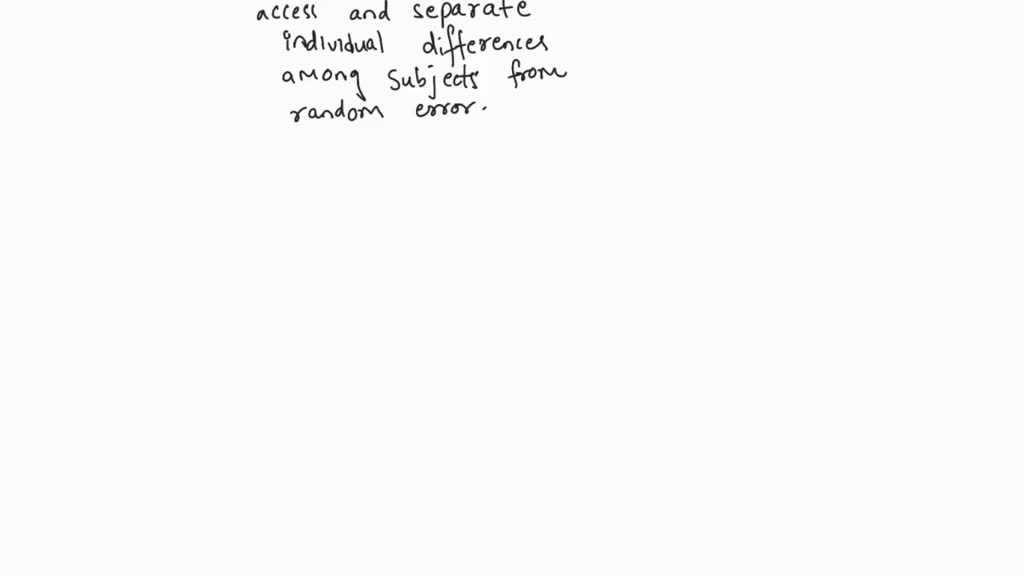 access and separate
individual differences
among subjects from
random error.